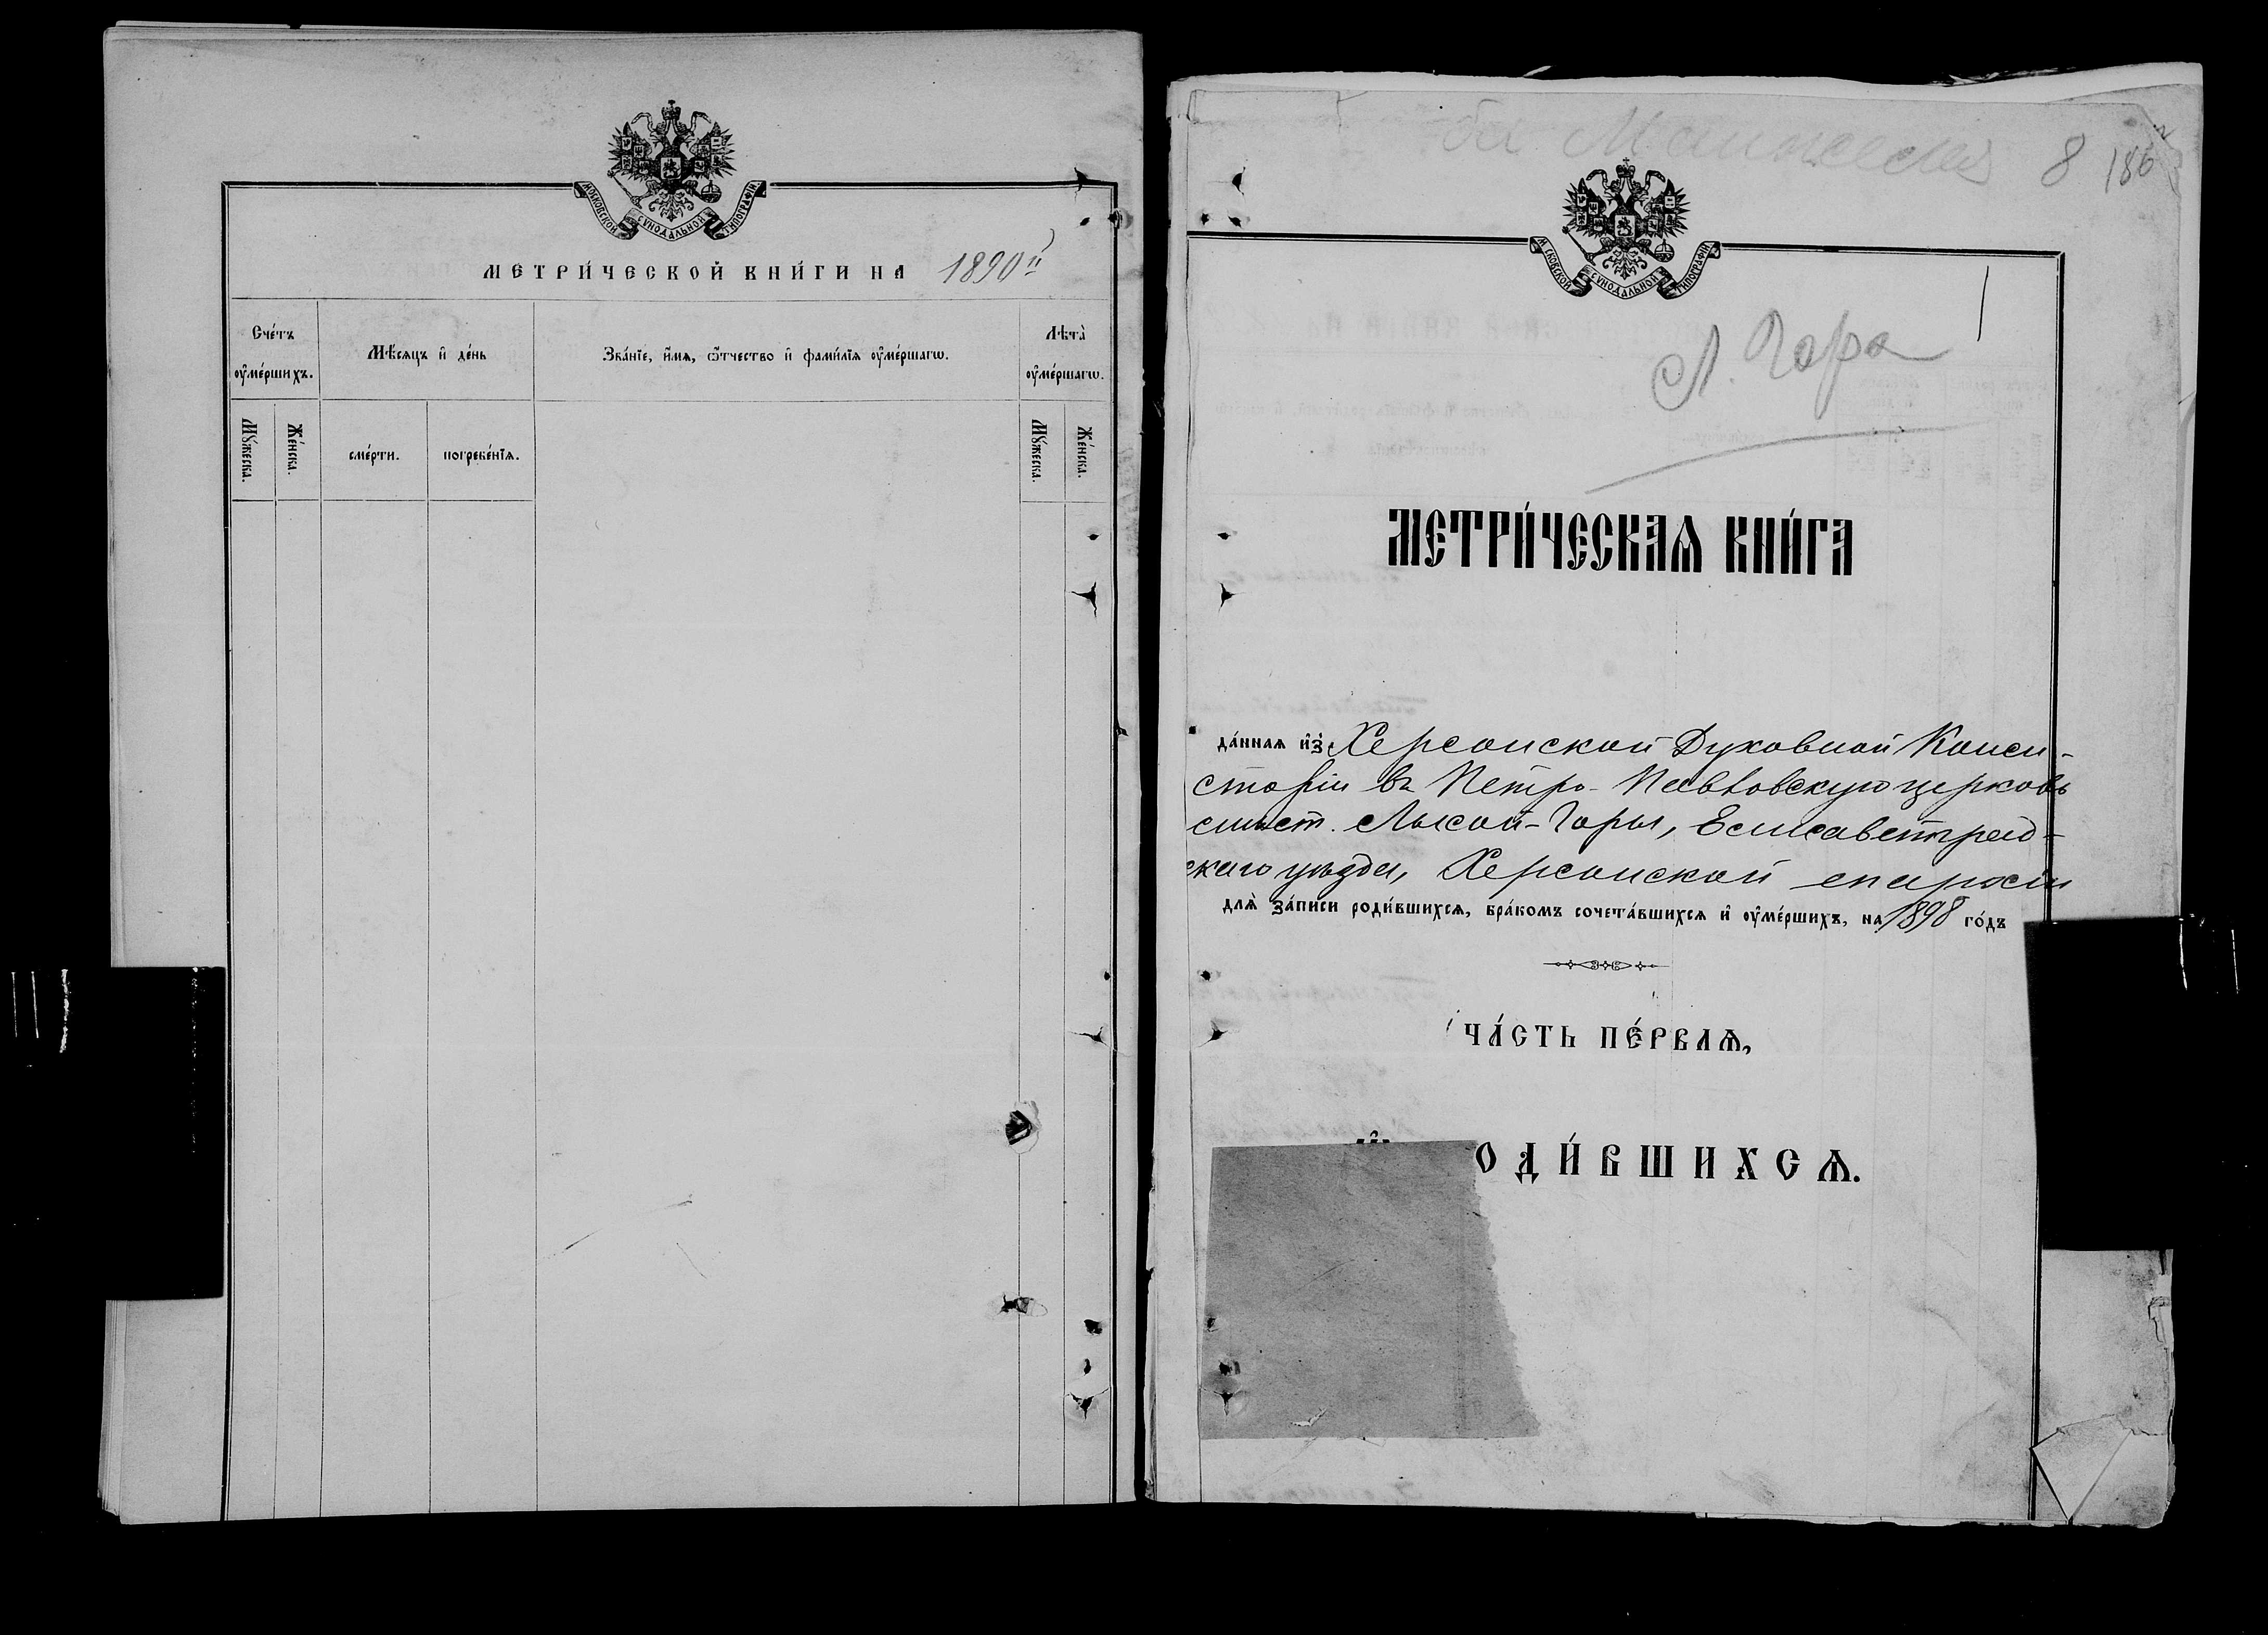 МОСКОВСКОЙ СѴНОДАЛЬНОЙ ТИПОГРАФІИ.
МЕТРИ́ЧЕСКОЙ КНИ́ГИ НА 1890й
Сче́тъ оумершихъ.
Мѣ́сяцъ и҆ де́нь
Зва́нїе, и҆́мѧ, ѻ҆́тчество и҆ фами́лїѧ оумершагѡ.
Лѣта̀ оумершагѡ.
Мꙋ́жеска.
Же́нска.
сме́рти.
погребе́нїѧ.
Мꙋ́жеска.
Же́нска.
8 186
М СКОВСКОЙ СѴНОДАЛЬНОЙ ТИПОГРАФІИ
1
Л. Гора
МЕТРИ́ЧЕСКАѦ КНИ́ГА
да́ннаѧ и҆з̾ Херсонской Духовной Конси-
сторіи въ Петро-Павловскую церковь
мѣст. Лысой-Горы, Елисаветград-
скаго уѣзда, Херсонской епархіи
длѧ̀ за́писи роди́вшихсѧ, бра́комъ сочета́вшихсѧ и҆ оуме́ршихъ, на 1898 го́дъ
ЧА́СТЬ ПЕ́РВАѦ,
ОДИ́ВШИХСѦ.